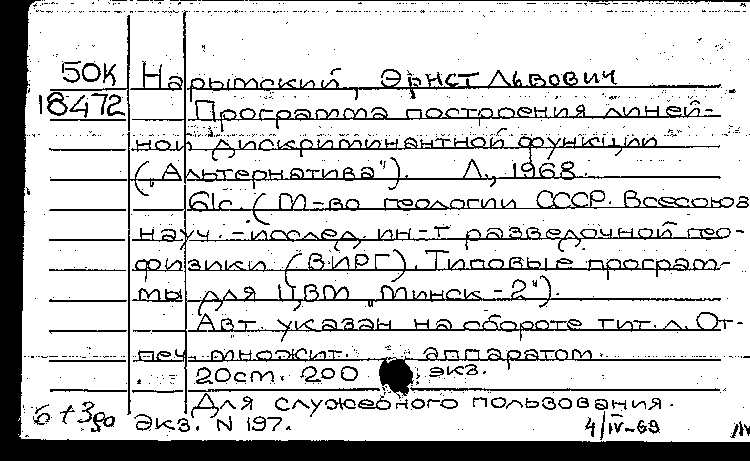 50К Нарымский, Эрнст Львович
18472 Программа построения линей-
ной дискриминантной функции
("Альтернатива"). Л., 1968.
61с. (М-во геологии СССР. Всесоюз
науч.-исслед. ин-т разведочной гео-
физики (ВИРГ). Типовые програм-
мы для ЦВМ „Минск-2").
Авт. указан на обороте тит. л. От-
печ. множит. аппаратом.
20см. 200 экз.
Для служебного пользования.
экз. N 197.
4/IV-69